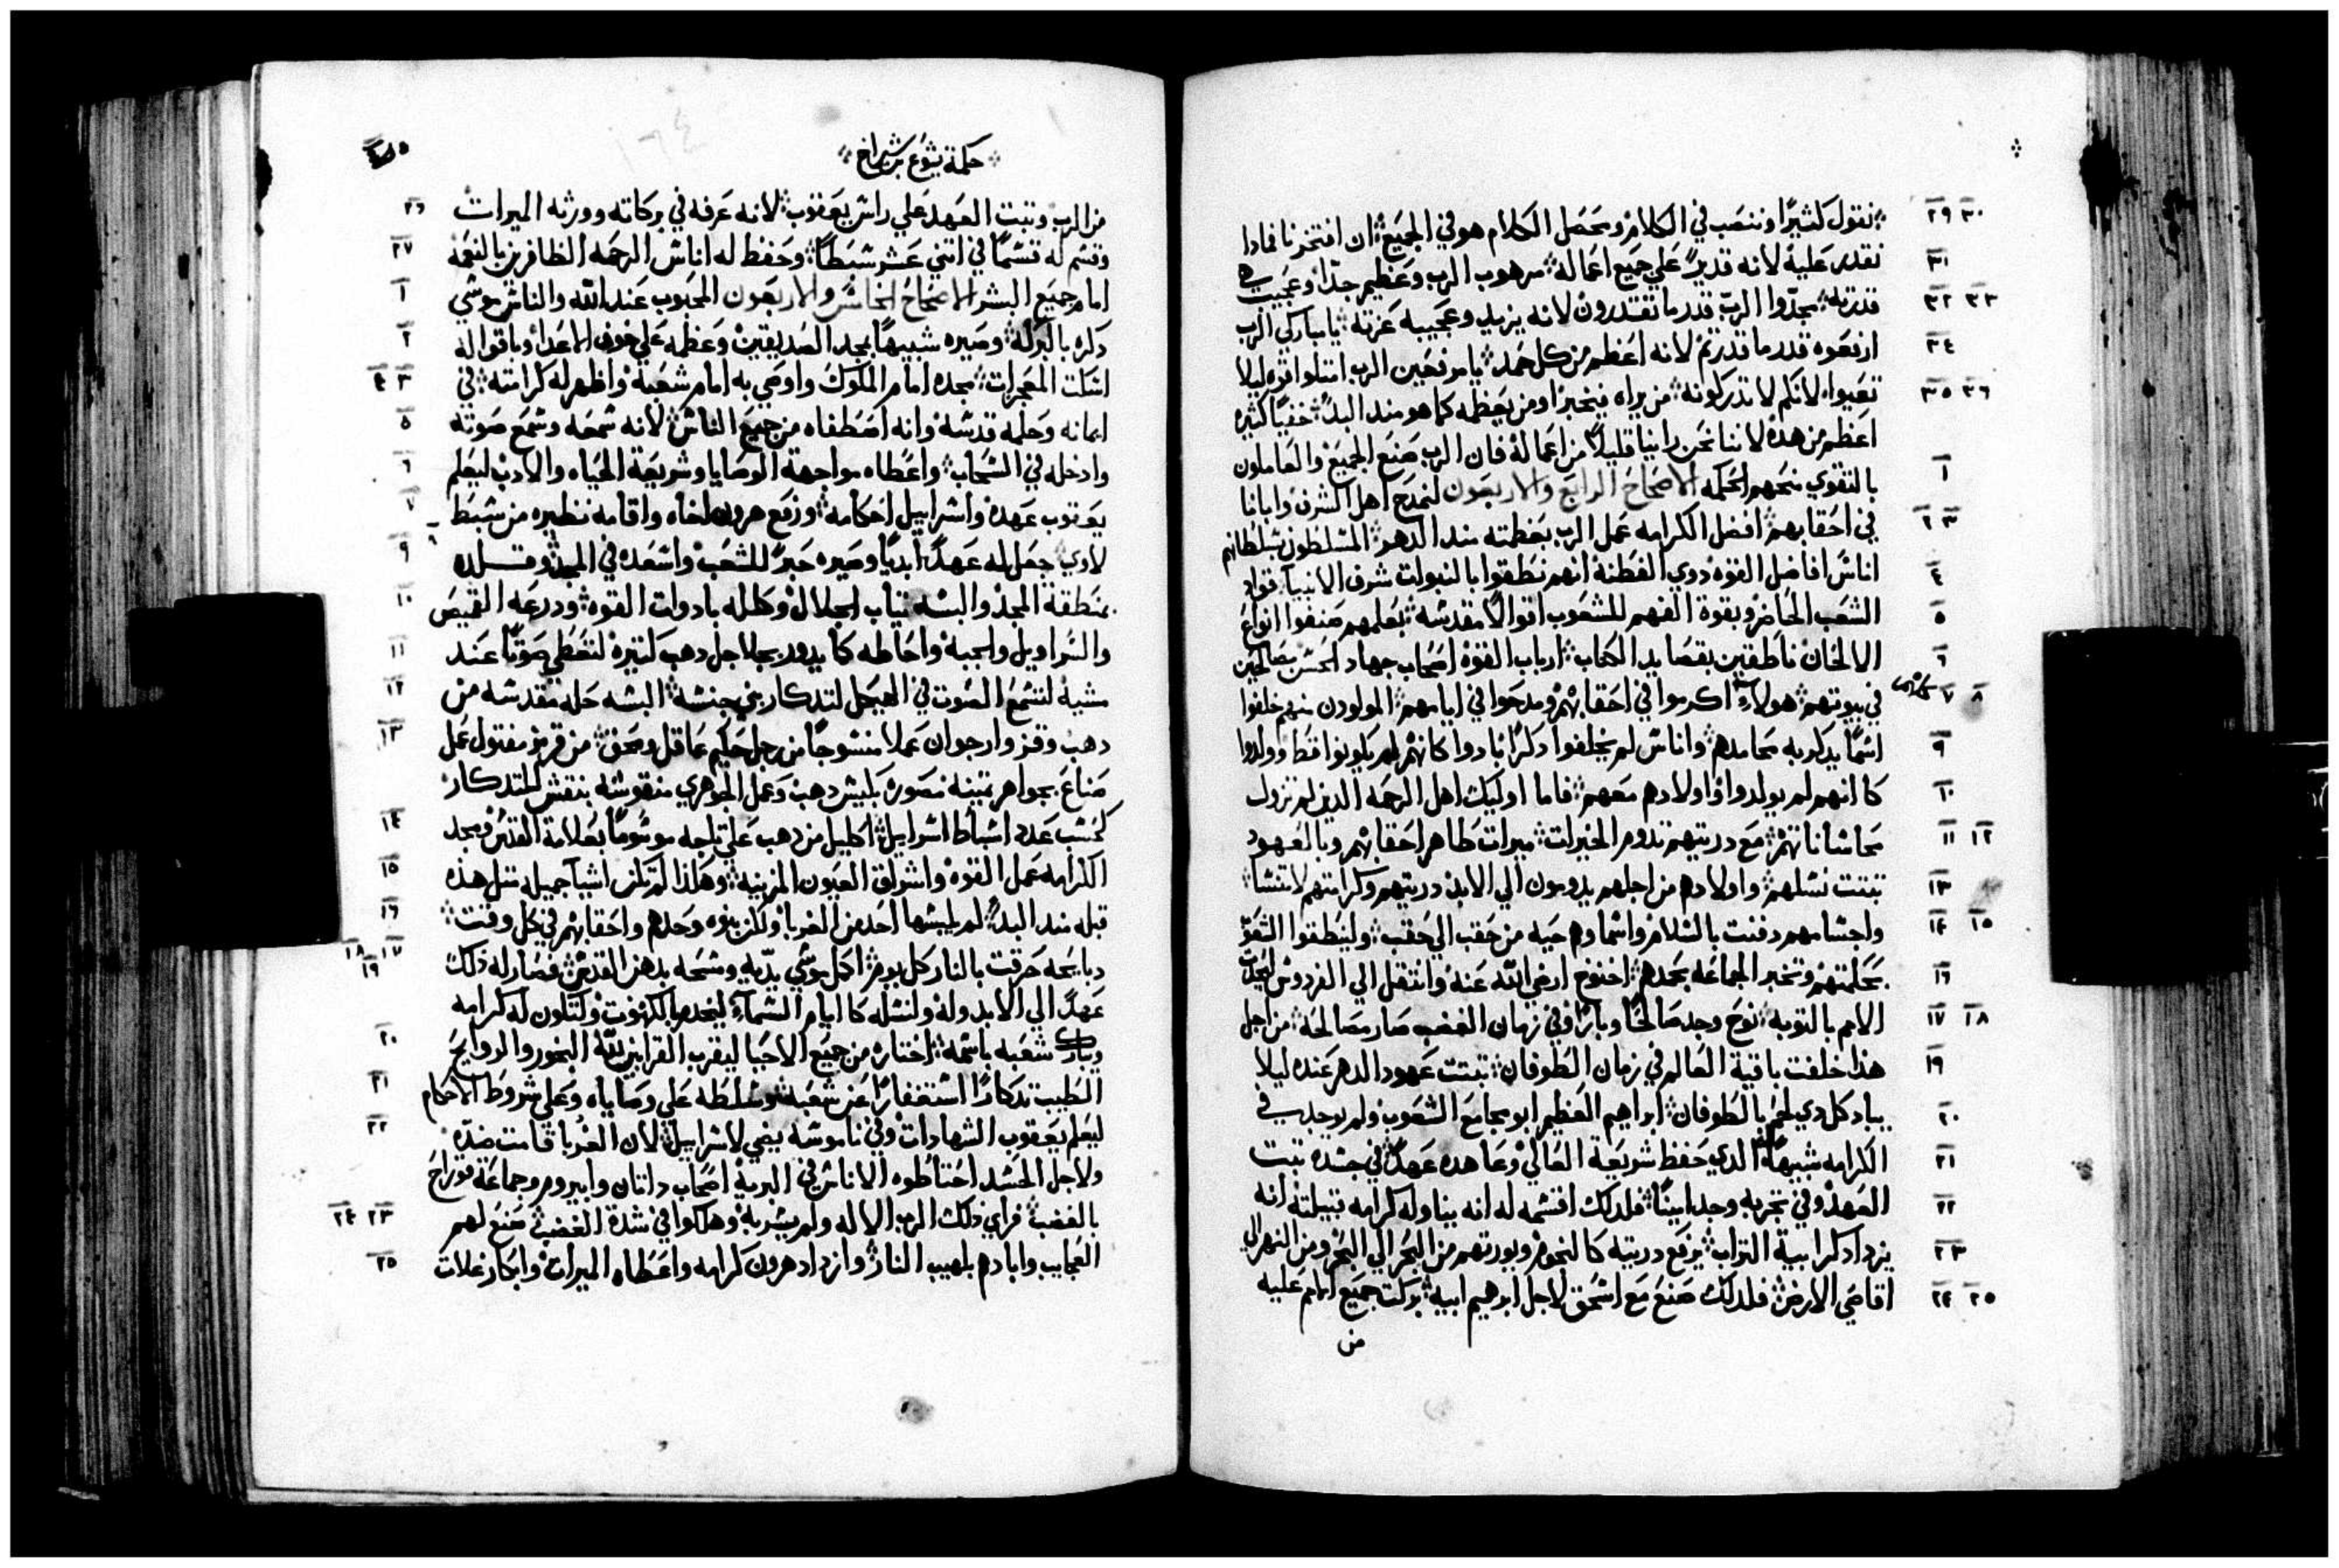 نقول كثيرًا وننصب في الكلام ومحصل الكلام هو في الجميع ان افتخرنا فمادا
نقدر عليه لانه قدير علي جميع اعماله مرهوب الرب وعظيم جدًا وعجيبه هي
قدرته مجدوا الرب قدر ما تقتدرون لانه يزيد وعجيبه عزته يا مباركي الرب
ارفعوه قدر ما قدرتم لانه اعظم من كل حمد يا مرفعين الرب امتلوا قوه ليلا
تعيوا لانكم لا تدركونه من يراه فيخبر او من يعظمه كما هو مند البدء خفيا كثيره
اعظم من هذه لاننا نحن راينا قليلًا من اعماله فان الرب صنع الجميع والعاملون
بالتقوي منحهم الحكمه الاصحاح الرابع والاربعون لنمدح اهل الشرف وابانا
في احقابهم افضل الكرامه عمل الرب بعظمته مند الدهر المتسلطون بسلطانهم
اناس افاضل القوه دوي الفطنة انهم نطقوا بالنبوات شرف الانبيا قواد
الشعب الحاضر وبقوة الفهم للشعوب اقوالًا مقدسه بعلمهم صنفوا انواع
الالحان ناطقين بقصايد الكتاب ارباب القوة اصحاب جهاد الحسن مصالحين
في بيوتهم هولاء اكرموا في احقابهم ومدحوا في ايامهم المولودون منهم خلفوا
اسمًا يدكر به محامدهم واناس لم يخلفوا دكرًا بادوا كانهم لم يكونوا قط وولدوا
كما انهم لم يولدوا واولادهم معهم فاما اوليك اهل الرحمه الدين لم تزول
محاسناتهم مع دريتهم تدوم الخيرات ميرات طاهر احقابهم وبالعهود
تبتت نسلهم واولادهم من اجلهم يدومون الي الابد دريتهم وكرامتهم لا تنسا
واجسامهم دفنت بالسلام واسماوهم حيه من حقب الي حقب ولينطقوا الشعوب
بحكمتهم وتخبر الجماعه بحمدهم اخنوخ ارضي الله عنه وانتقل الي الفردوس ليحدث
الامم بالتوبه نوح وجد صالحًا وبارًا وفي زمان الغضب صار مصالحة من اجل
هذا خلفت باقية العالم في زمان الطوفان تبتت عهود الدهر عنده ليلا
يباد كل دي لحم بالطوفان ابراهيم العظيم ابو مجامع الشعوب ولم يوجد في
الكرامه شبيهًا له الدي حفظ شريعة العالي وعاهده عهدًا في جسده تبتت
العهد وفي تجربه وجد امينًا فلدلك اقسمه له انه يناوله كرامه قبيلته انه
يزداد كرابية التراب يرفع دريته كالنجوم ويورتهم من البحر الي البحر ومن النهر الي
اقاصي الارض فلدلك صنع مع اسحق لاجل ابرهيم ابيه بركت جميع امم عليه
من
٢٩ ٣٠
٣١
٣٢ ٣٣
٣٤
٣٥ ٣٦
١
٢ ٣
٤
٥
٦
٧ ٨
٩
١٠
١١ ١٢
١٣
١٤ ١٥
١٦
١٧ ١٨
١٩
٢٠
٢١
٢٢
٢٣
٢٤ ٢٥
حكمة يشوع بن شيراخ
١٦٤
من الرب وتبت العهد علي راس يعقوب لانه عرفه في بركاته وورثه الميرات
وقسم له قسمًا في اتني عشر شبطًا وحفظ له اناس الرحمه الظافرين بالنعمه
امام جميع البشر الاصحاح الخامس والاربعون المحبوب عند الله والناس موسي
دكره بالبركه وصيره شبيهًا بمجد الصديقين وعظمه علي خوف الاعدا وباقواله
اسكت المعجزات مجده امام الملوك واوصي به امام شعبه واظهر له كرامته في
ايمانه وحلمه قدسه وانه اصطفاه من جميع الناس لانه سمعه وسمع صوته
وادخله في السحاب واعطاه مواجهة الوصايا وشريعة الحياه والادب ليعلم
يعقوب عهده واسراييل احكامه ورفع هرون اخاه واقامه نظيره من سبط
لاوي جعل له عهدًا ابديًا وصيره حبرًا للشعب واسعده في المجد وقلده
بمنطقة المجد والبسه تياب الجلال وكلله بادوات القوه ودرعه القميص
والسراويل والجبة واحاطه كما يدور بجلاجل دهب كتيره لتعطي صوتًا عند
مشيه لتسمع الصوت في الهيكل لتدكار بني جنسه البسه حله مقدسه من
دهب وقز وارجوان عملا منسوجًا من رجل حكيم عاقل ومحق من قرمز مفتول عمل
صناع بجواهر تمينه منصوره بكبيس دهب وعمل الجوهري منقوشه بنقش للتدكار
كحسب عدد اسباط اسراييل اكليل من دهب علي تاجه موسومًا بعلامة القدس ومجد
الكرامه عمل القوه واشواق العيون المزينه وهكذا لم تكن اشيا جميله متل هذه
قبله مند البدء لم يلبسها احد من الغربا ولكن بنوه وحدهم واحقابهم في كل وقت
دبايحه حرقت بالنار كل يوم اكمل موسي يديه ومسحه بدهن القدس فصار له ذلك
عهدًا الي الابد وله ولنسله كايام السماء ليخدم بالكهنوت ولتكون له كرامه
ويبارك شعبه باسمه اختاره من جميع الاحيا ليقرب القرابين لله البخور والروايح
الطيب تدكارًا استغفارًا عن شعبه وسلطه علي وصاياه وعلي شروط الاحكام
ليعلم يعقوب الشهادات وفي ناموسه يضي لاسراييل لان الغربا قامت ضده
ولاجل الحسد احتاطوه الاناس في البرية اصحاب داتان وابيروم وجماعة قوراح
بالغضب فراي ذلك الرب الاله ولم يسر به وهلكوا في شدة الغضب صنع لهم
العجايب وابادهم بلهيب النار وازداد هرون كرامه واعطاه الميرات وابكار غلات
٢٦
٢٧
١
٢
٣ ٤
٥
٦
٧
٩
١٠
١١
١٢
١٣
١٤
١٥
١٦
١٧ ١٨
١٩
٢٠
٢١
٢٢
٢٣ ٢٤
٢٥